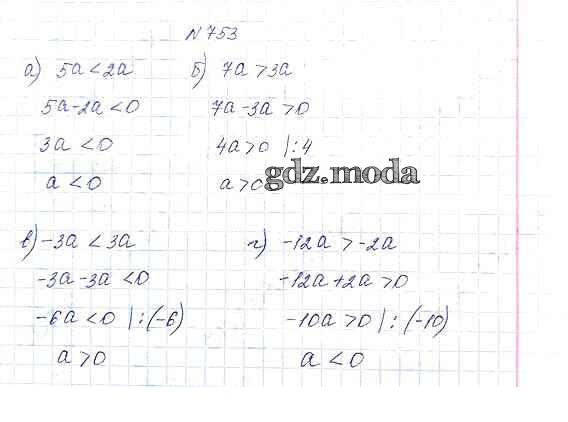 N 753
а) 5a < 2a
5a - 2a < 0
3a < 0
a < 0
б) 7a > 3a
7a - 3a > 0
4a > 0 |: 4
a > 0
gdz.moda
в) -3a < 3a
-3a - 3a < 0
-6a < 0 |: (-6)
a > 0
г) -12a > -2a
-12a + 2a > 0
-10a > 0 |: (-10)
a < 0